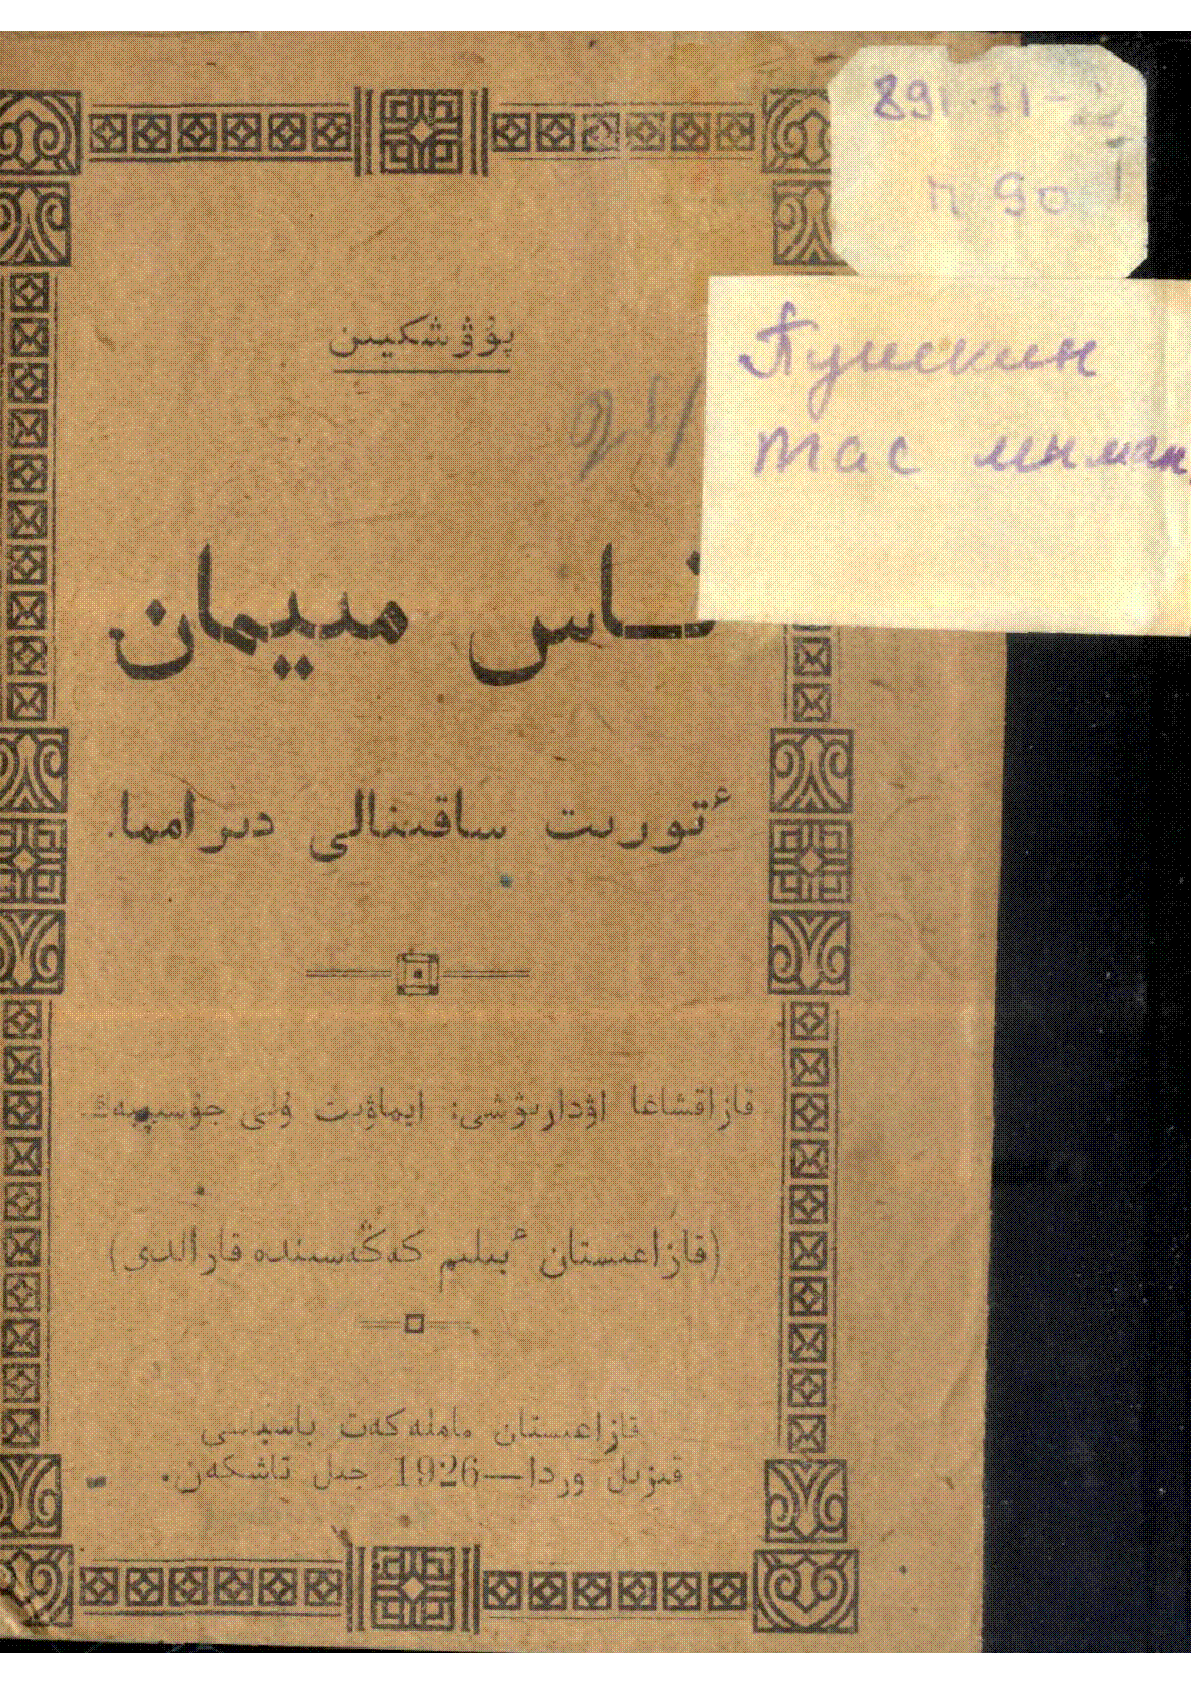 891.71-
П 90
Пушкин
Тас мыман
پۇۋشكيىن
تاس مىيمان
ٴتورىت ساقىنالى دىرامما.
قازاقشاعا اۋدارىۋشى: ايماۋىت ۇلى جۇسىپبەك.
(قازاعىستان ٴبىلىم كەڭەسىندە قارالدى)
قازاعىستان مامىلەكەت باسپاسى
قىزىل وردا—1926 جىل تاشكەن.